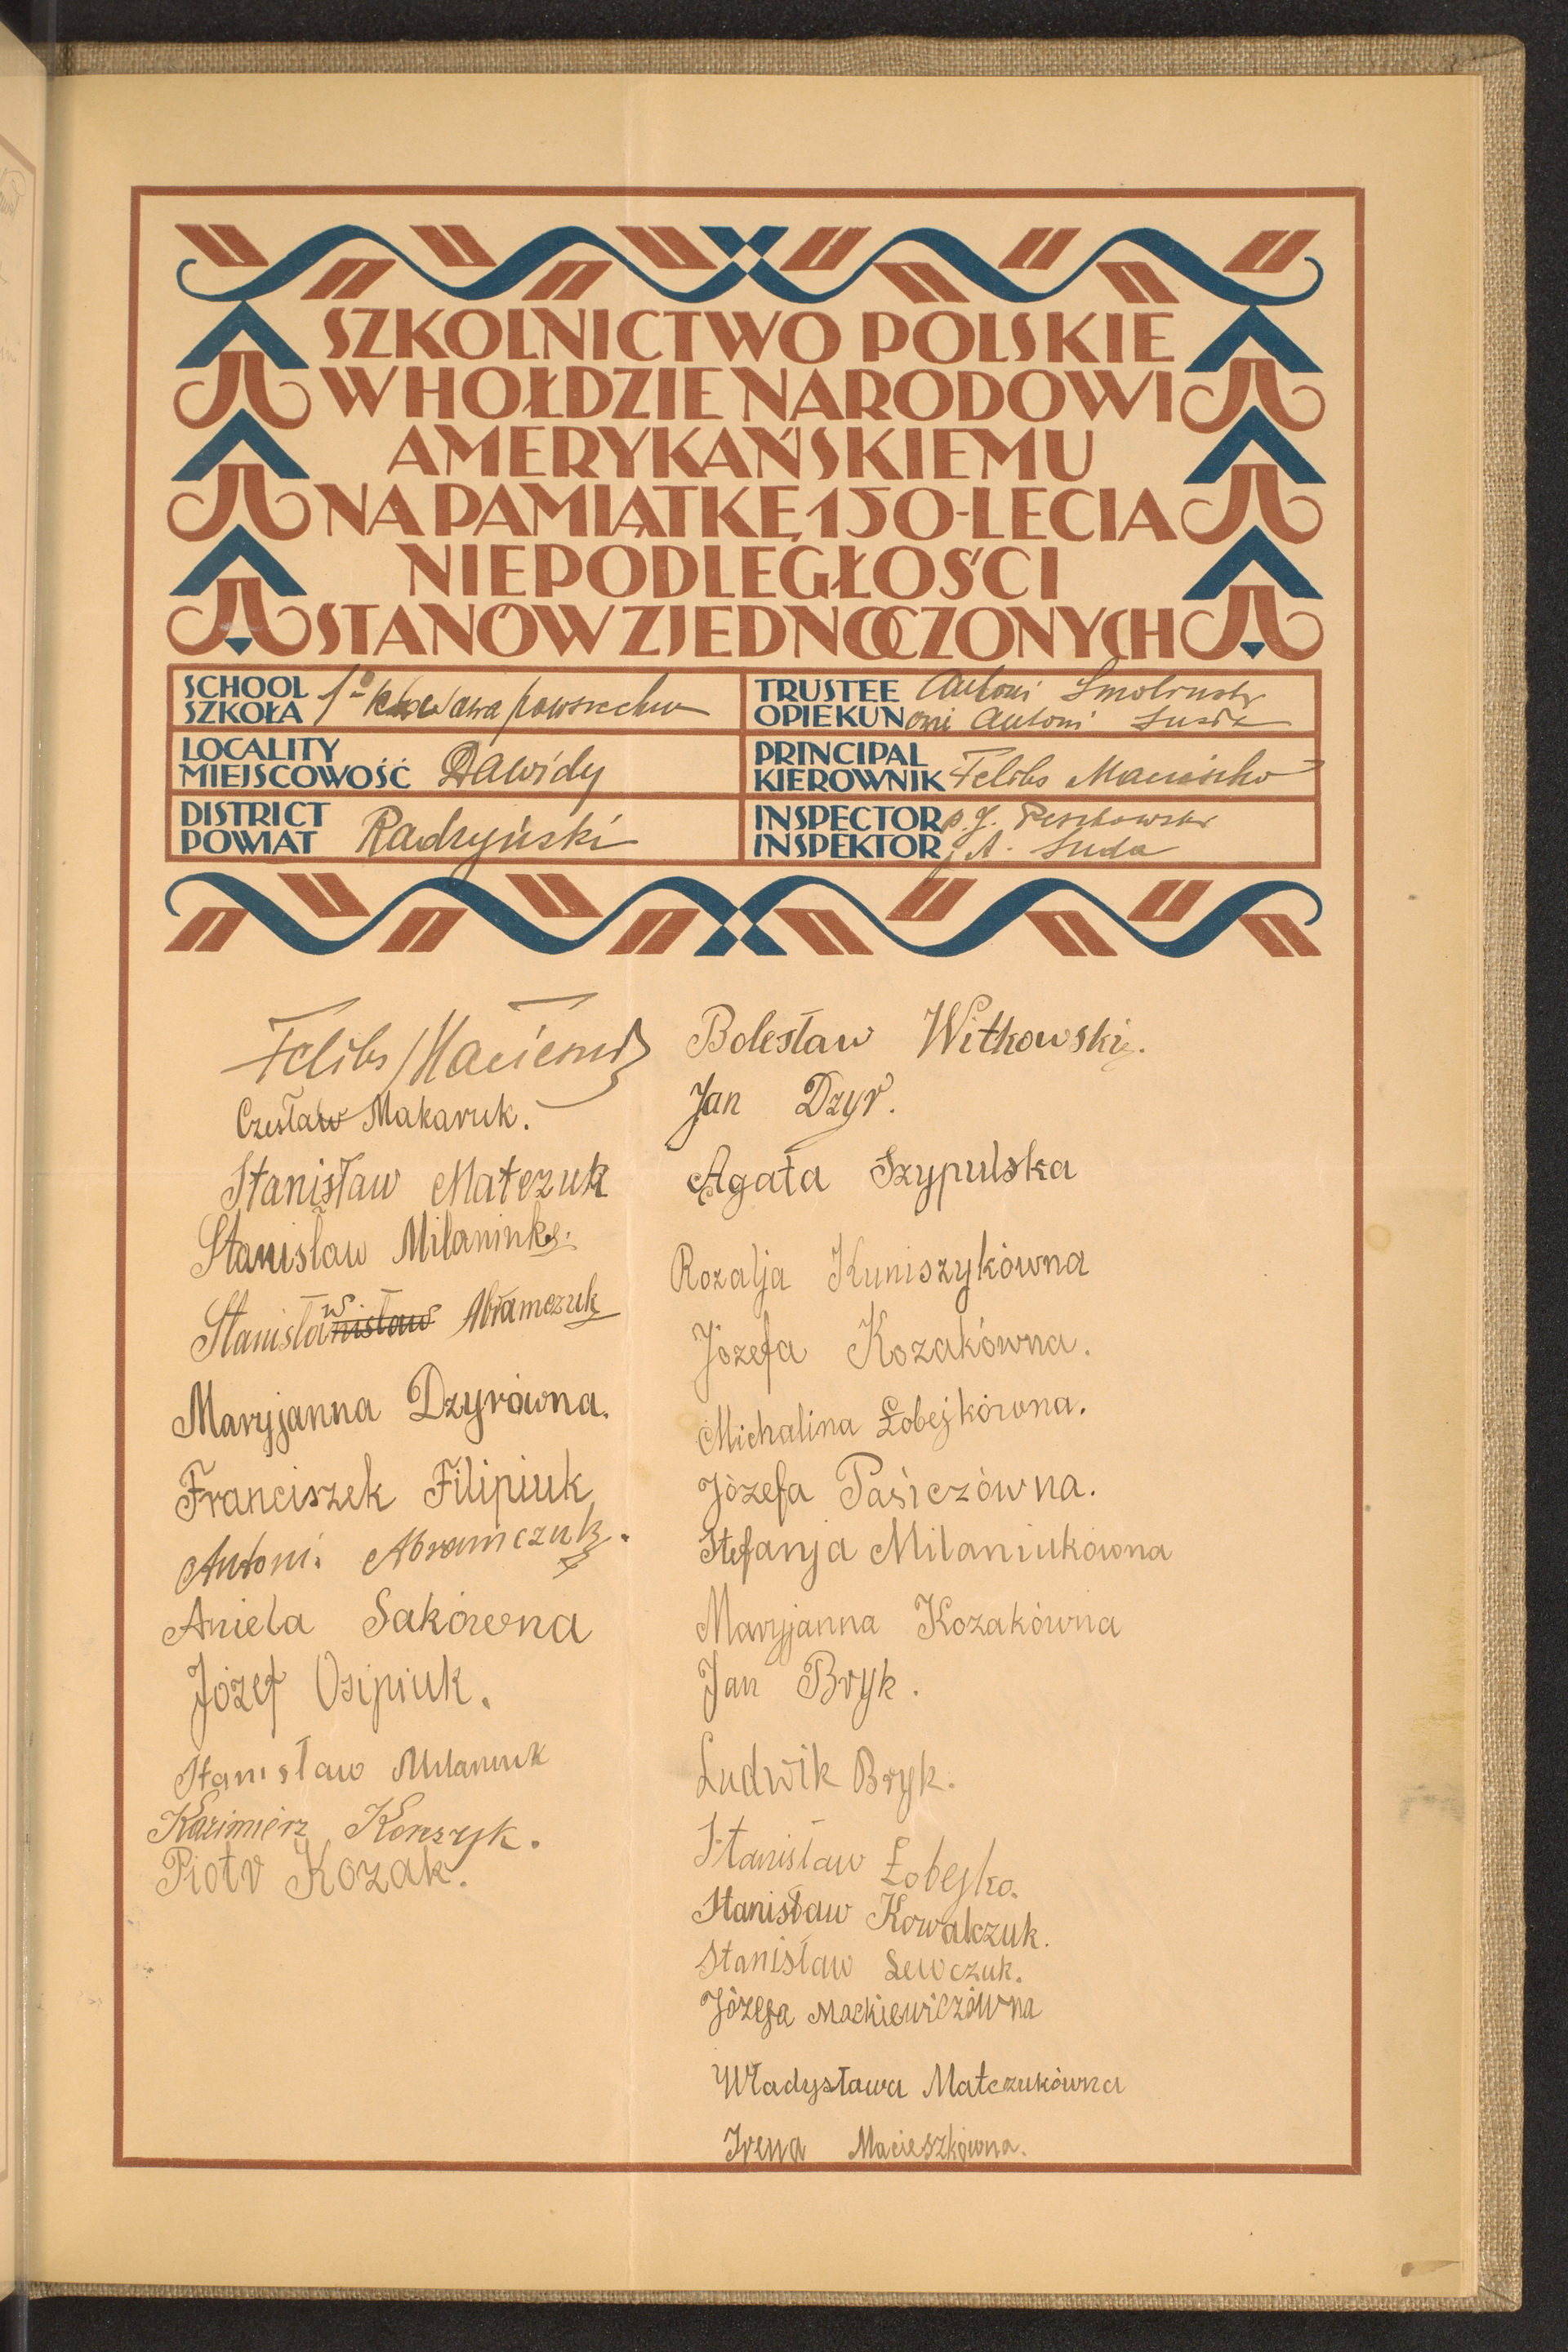 SZKOLNICTWO POLSKIE
W HOŁDZIE NARODOWI
AMERYKAŃSKIEMU
NA PAMIĄTKĘ 150-LECIA
NIEPODLEGŁOŚCI
STANÓW ZJEDNOCZONYCH
SCHOOL
SZKOŁA
LOCALITY
MIEJSCOWOŚĆ Dawidy
DISTRICT
POWIAT Radzyński
TRUSTEE Antoni
OPIEKUN Antoni
PRINCIPAL
KIEROWNIK Feliks
INSPECTOR p. J.
INSPEKTOR A. Suda
Feliks
Czesław Makaruk.
Stanisław Matczuk
Stanisław
Stanisław Abramczuk
Maryjanna Dzyrówna.
Franciszek Filipiuk
Antoni Abramczuk.
Aniela Sakówna
Józef Osipiuk.
Stanisław Milaniuk
Kazimierz Korszyk.
Piotr Kozak.
Bolesław Witkowski.
Jan Dzyr.
Agata Szypulska
Rozalja Kuniszykówna
Józefa Kozakówna.
Michalina Łobejkówna.
Józefa Pasiczówna.
Stefanja Milaniukówna
Maryjanna Kozakówna
Jan Bryk.
Ludwik Bryk.
Stanisław Łobejko.
Stanisław Kowalczuk.
Stanisław Lewczuk.
Józefa Mackiewiczówna
Władysława Matczukówna
Irena Macieszkówna.